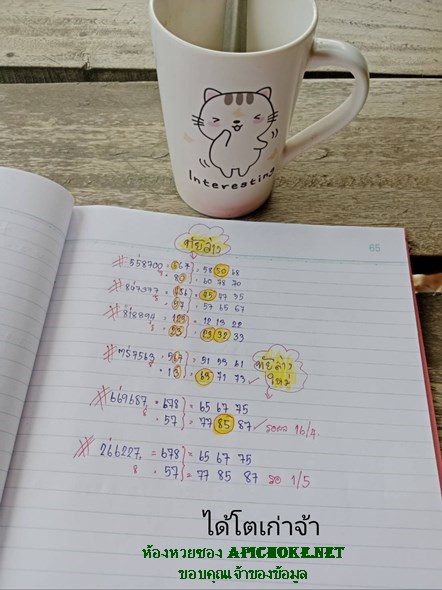 Interesting
65
ท้ายล่าง
558700 = 567 = 58 50 68
= 85 = 60 78 70
847377 = 456 = 85 87 35
= 57 = 57 65 67
818894 = 123 = 12 13 22
= 23 = 23 32 33
= 567 = 51 53 61
= 13 = 63 71 73 ✓
ล่าง
ใหม่
669687 = 678 = 65 67 75
8 = 57 = 77 85 87 ✓ 16/4
266227 = 678 = 65 67 75
8 = 57 = 77 85 87 รอ 1/5
ได้โตเก่าจ้า
ห้องหวยซอง APICHOKE.NET
ขอบคุณเจ้าของข้อมูล